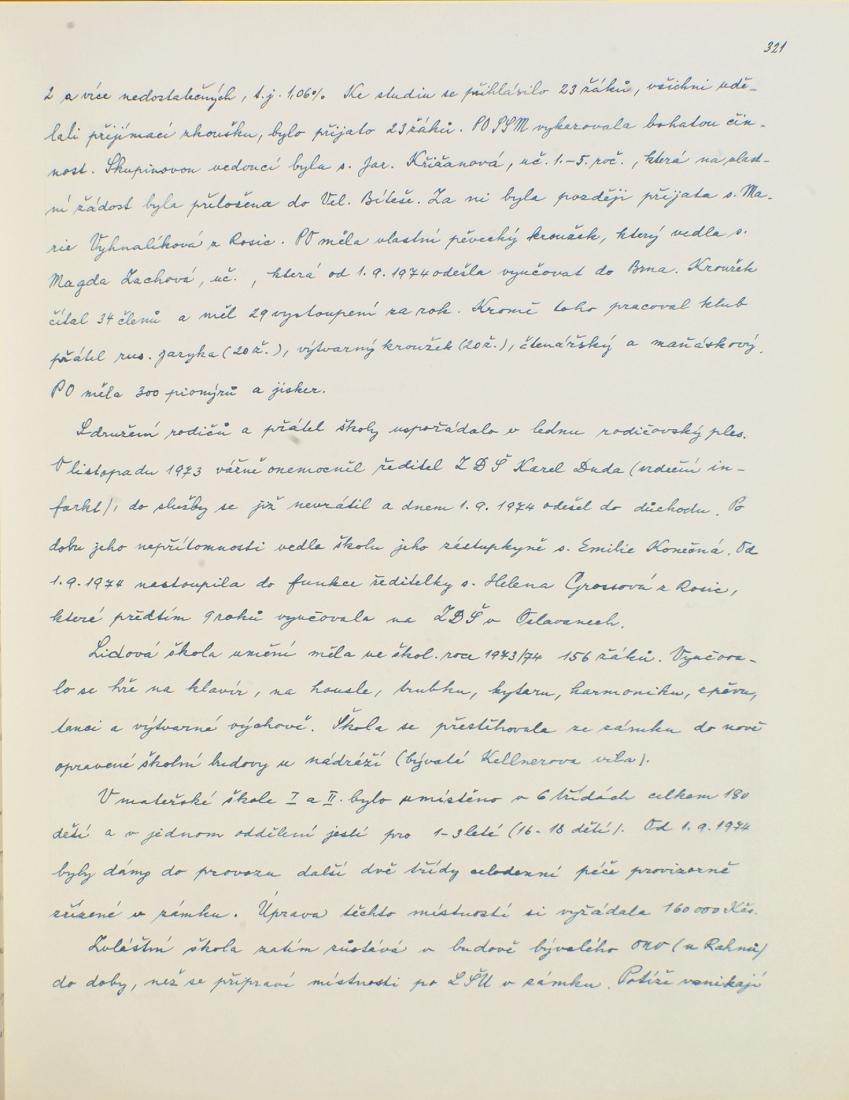 321
2 a více nedostatečných, t.j. 1,06% Ke studiu se přihlásilo 23 žáků, všichni udě-
lali přijímací zkoušku, bylo přijato 23 žáků. PO SSM vykazovala bohatou čin-
nost. Skupinovou vedoucí byla s. Jar. Křižanová, uč. 1.-5. roč., která na vlast-
ní žádost byla přeložena do Vel. Bíteše. Za ni byla později přijata s. Ma-
rie Vyhnalíková z Rosic. PO měla vlastní pěvecký kroužek, který vedla s.
Magda Zachová, uč., která od 1.9.1974 odešla vyučovat do Brna. Kroužek
čítal 34 členů a měl 29 vystoupení za rok. Kromě toho pracoval klub
přátel rus. jazyka (20 ž.), výtvarný kroužek (20 ž.), čtenářský a maňáskový.
PO měla 300 pionýrů a jisker.
Sdružení rodičů a přátel školy uspořádalo v lednu rodičovský ples.
V listopadu 1973 vážně onemocněl ředitel ZDŠ Karel Duda (srdeční in-
farkt), do služby se již nevrátil a dnem 1.9.1974 odešel do důchodu. Po
dobu jeho nepřítomnosti vedla školu jeho zástupkyně s. Emilie Konečná. Od
1.9.1974 nastoupila do funkce ředitelky s. Helena Grossová z Rosic,
které předtím 9 roků vyučovala na ZDŠ v Oslavanech.
Lidová škola umění měla ve škol. roce 1973/74 156 žáků. Vyučova-
lo se hře na klavír, na housle, trubku, kytaru, harmoniku, zpěvu,
tanci a výtvarné výchově. Škola se přestěhovala ze zámku do nově
opravené školní budovy u nádraží (bývalá Kellnerova vila).
V mateřské škole I a II. bylo umístěno v 6 třídách celkem 180
dětí a v jednom oddělení jeslí pro 1-3leté (16-18 dětí). Od 1.9.1974
byly dány do provozu další dvě třídy celodenní péče provizorně
zřízené v zámku. Úprava těchto místností si vyžádala 160 000 Kčs.
Zvláštní škola zatím zůstává v budově bývalého ONV (u Rahnů)
do doby, než se připraví místnosti po LŠU v zámku. Potíže vznikají